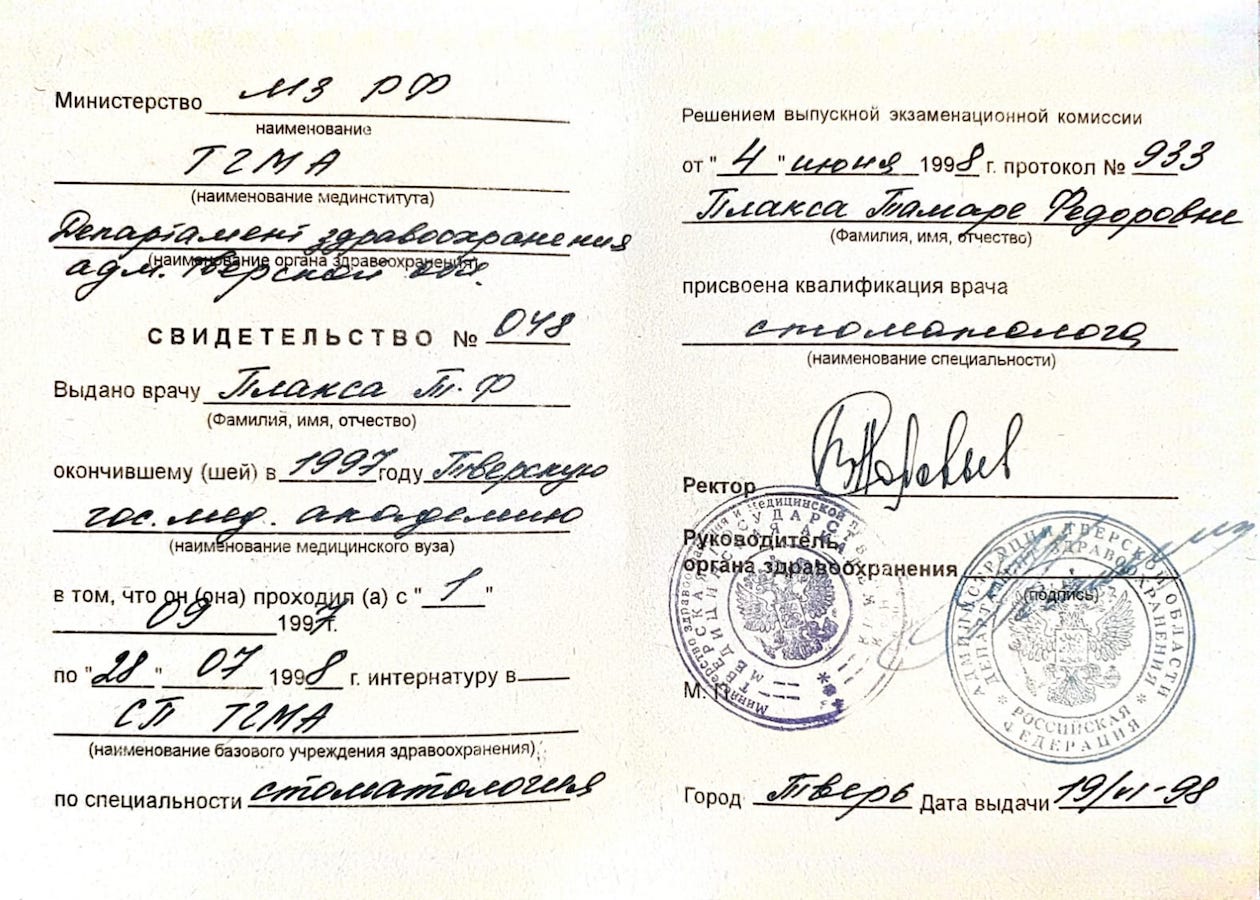 Министерство МЗ РФ
наименование
ТГМА
(наименование мединститута)
Департамент здравоохранения
(наименование органа здравоохранения)
адм. Тверской обл.
СВИДЕТЕЛЬСТВО № 048
Выдано врачу Плакса Т.Ф
(Фамилия, имя, отчество)
окончившему (шей) в 1997 году Тверскую
гос. мед. академию
(наименование медицинского вуза)
в том, что он (она) проходил (а) с "1"
09 1997 г.
по "28" 07 1998 г. интернатуру в
СП ТГМА
(наименование базового учреждения здравоохранения)
по специальности стоматология
Решением выпускной экзаменационной комиссии
от "4" июня 1998 г. протокол № 933
Плакса Тамаре Федоровне
(Фамилия, имя, отчество)
присвоена квалификация врача
стоматолога
(наименование специальности)
Ректор
Руководитель
органа здравоохранения
(подпись)
М. П.
АДМИНИСТРАЦИИ ТВЕРСКОЙ ОБЛАСТИ
ДЕПАРТАМЕНТ ЗДРАВООХРАНЕНИЯ
* РОССИЙСКАЯ *
ФЕДЕРАЦИЯ
Город Тверь Дата выдачи 19/VI-98